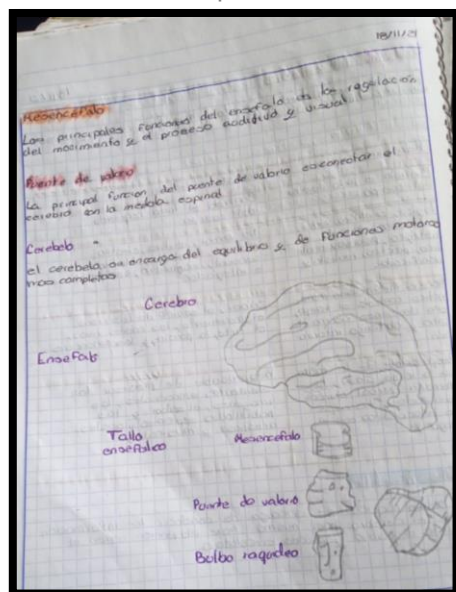 18/11/21
Mesencefalo
Las principales funciones del encefalo es la regulacion
del movimiento y el proceso auditivo y visual
Puente de valorio
La principal funcion del puente de valorio es conectar el
cerebro con la medula espinal
Cerebelo
el cerebelo se encarga del equilibrio y de funciones motoras
mas completas
Cerebro
Ensefalo
Tallo
ensefalico
Mesencefalo
Puente de valorio
Bulbo raquideo